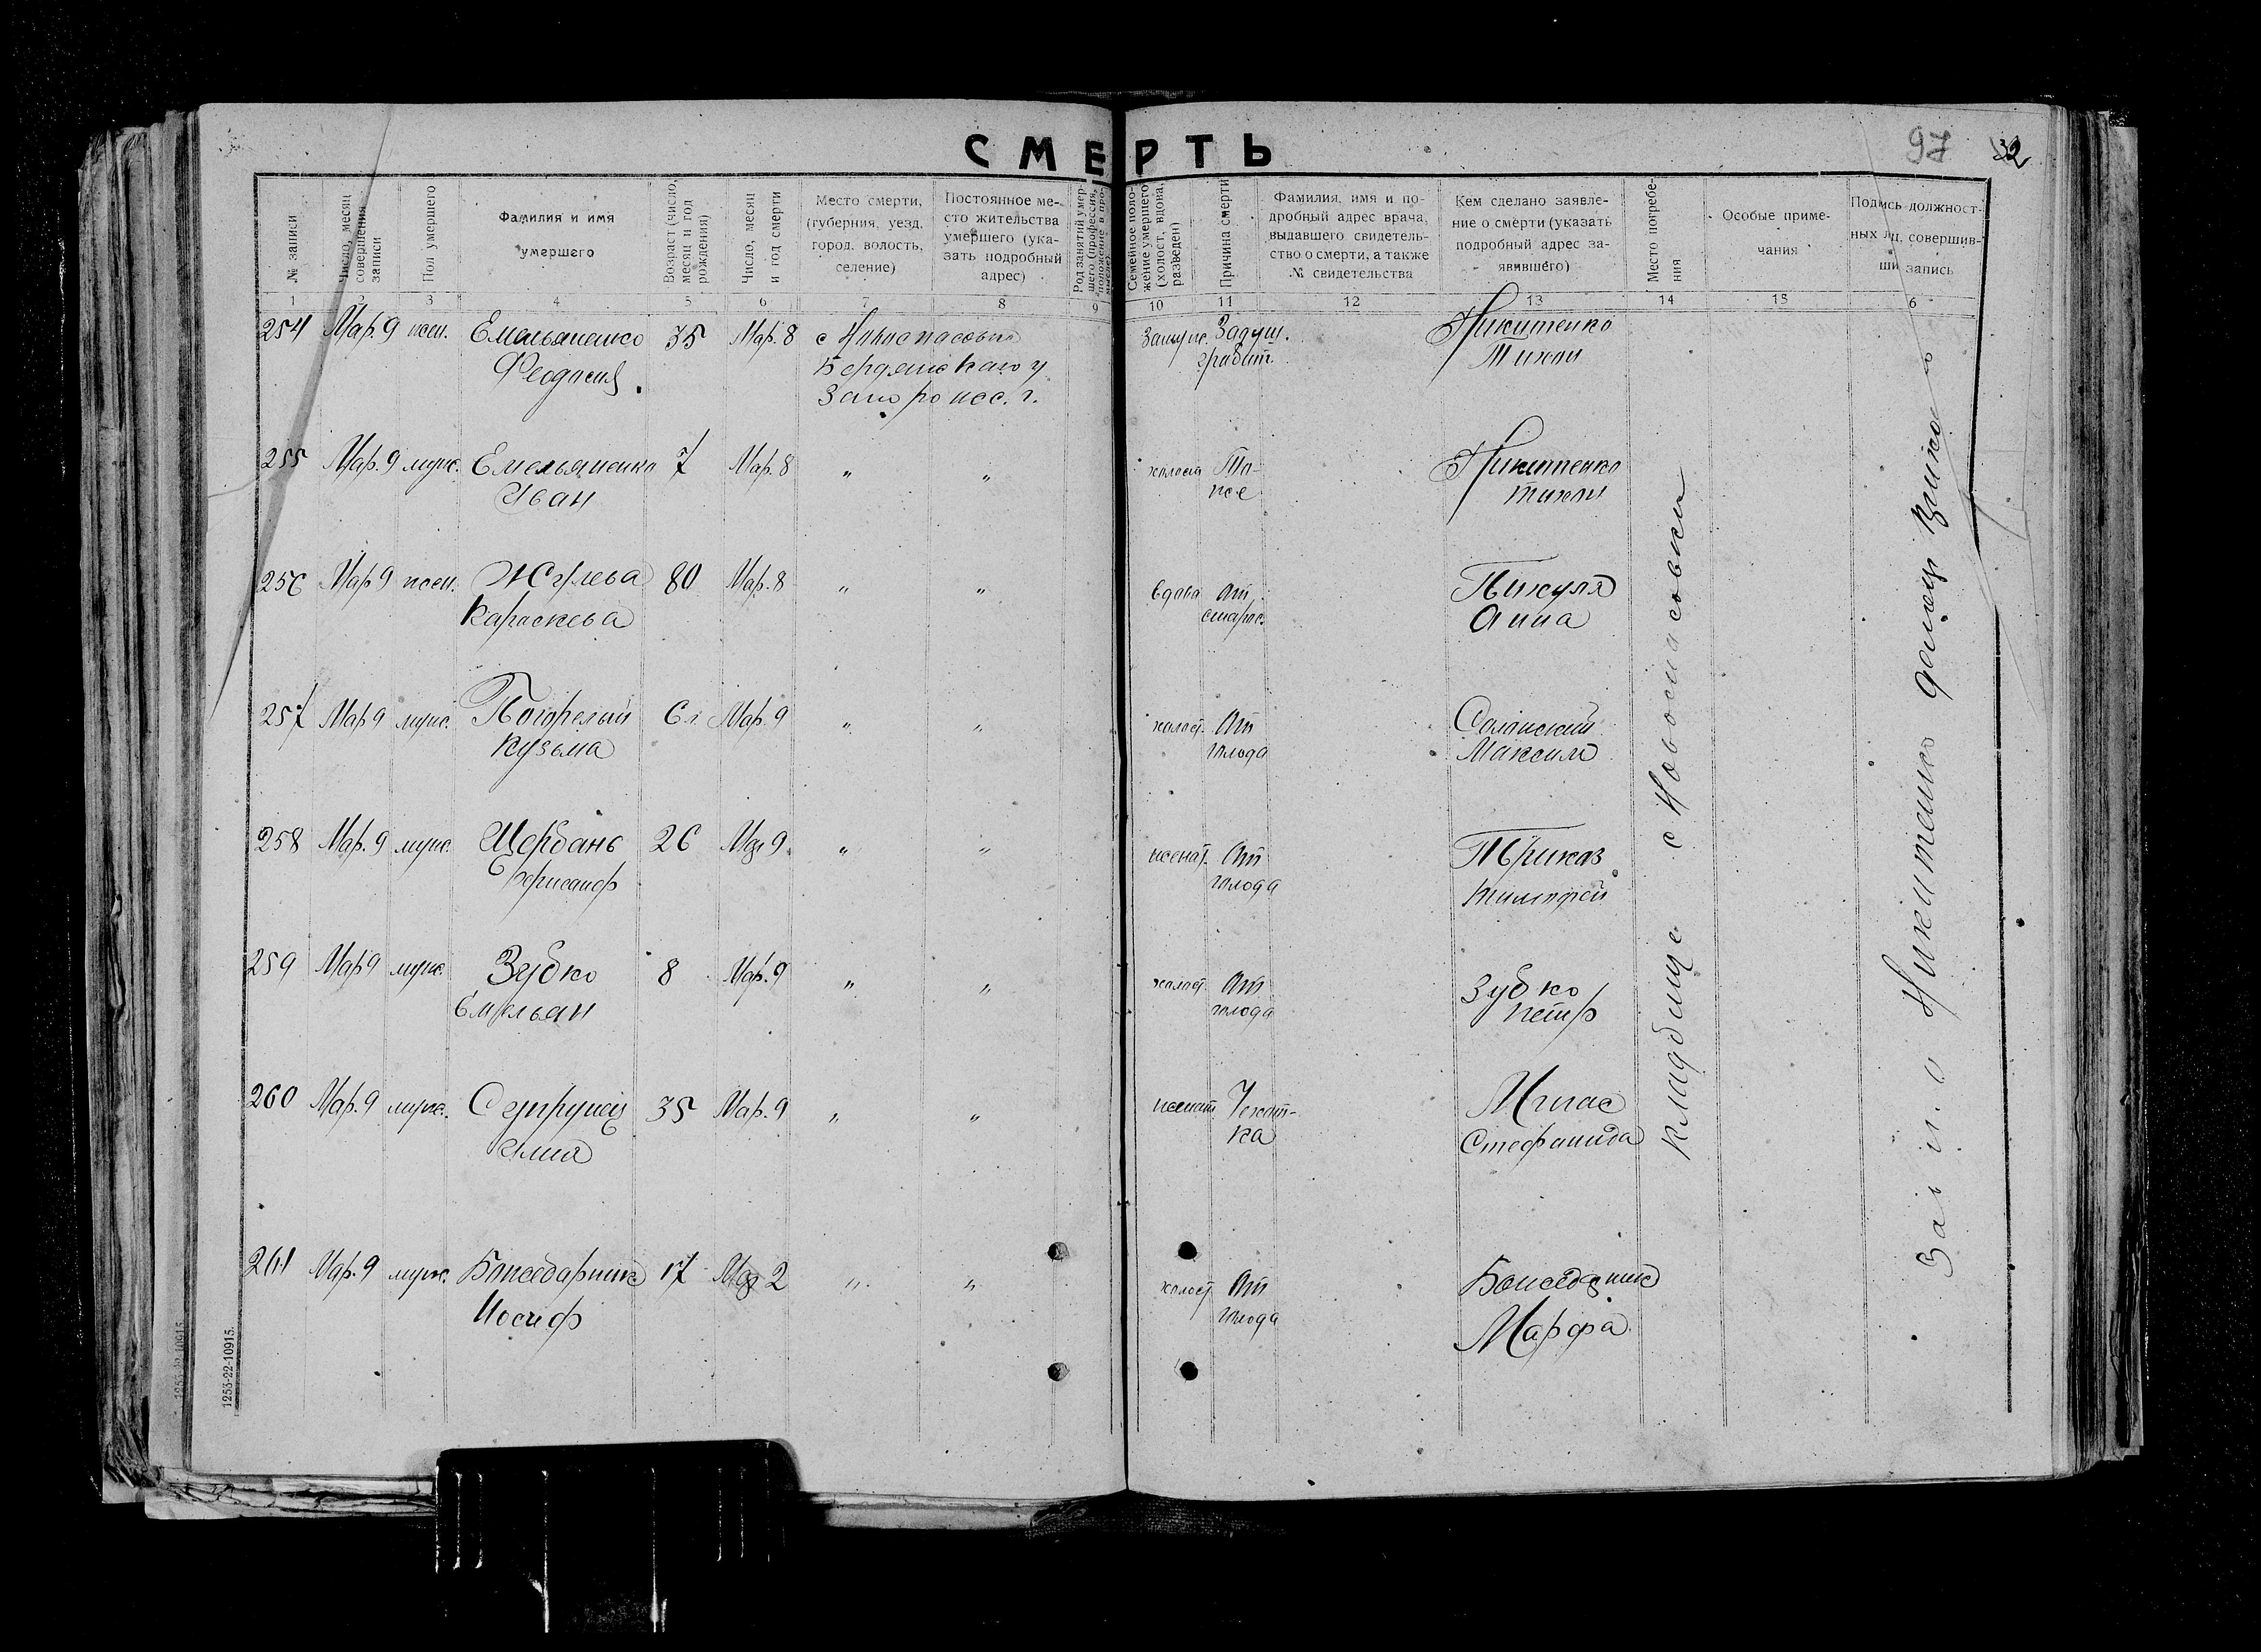 СМЕРТЬ
97 32
№ записи
Число, месяц совершения записи
Пол умершего
Фамилия и имя умершего
Возраст (число, месяц и год рождения)
Число, месяц и год смерти
Место смерти, (губерния, уезд, город, волость, селение)
Постоянное место жительства умершего (указать подробный адрес)
Род занятий умершего (профессия, положение в промысле)
Семейное положение умершего (холост, вдова, разведен)
Причина смерти
Фамилия, имя и подробный адрес врача, выдавшего свидетельство о смерти, а также № свидетельства
Кем сделано заявление о смерти (указать подробный адрес заявившего)
Место погребения
Особые примечания
Подпись должностных лиц, совершивши запись
1 2 3 4 5 6 7 8 9 10 11 12 13 14 15 6
254 Мар. 9 жен. Емельяненко 35 Мар. 8 с Новоспасовка Замуж. Задуш. Никитенко
Феодосия Бердянского у грабит. Тихон
Запорож. г.
255 Мар. 9 муж. Емельяненко 7 Мар. 8 " " холост То- Никитенко
Иван же Тихон
256 Мар 9 жен. 80 Мар. 8 " " вдова От Пикуля
старос. Анна
257 Мар 9 муж. Погорелый 6 Мар. 9 " " холост. От
Кузьма голода Максим
258 Мар. 9 муж. Щербань 26 Мар 9 " " женат. От Приказ
голода Тимофей
259 Мар 9 муж. Зубко 8 Мар. 9 " " холост. От Зубко
Емельян голода Петр
260 Мар. 9 муж. Супрунец 35 Мар. 9 " " женат Чехот-
Илия ка Стефанида
261 Мар. 9 муж. 17 Мар 2 " " холост От
Иосиф голода Марфа
кладбище с Новоспасовки
Зав и. о Никитенко
1253-22-10915.
1253-22-10915